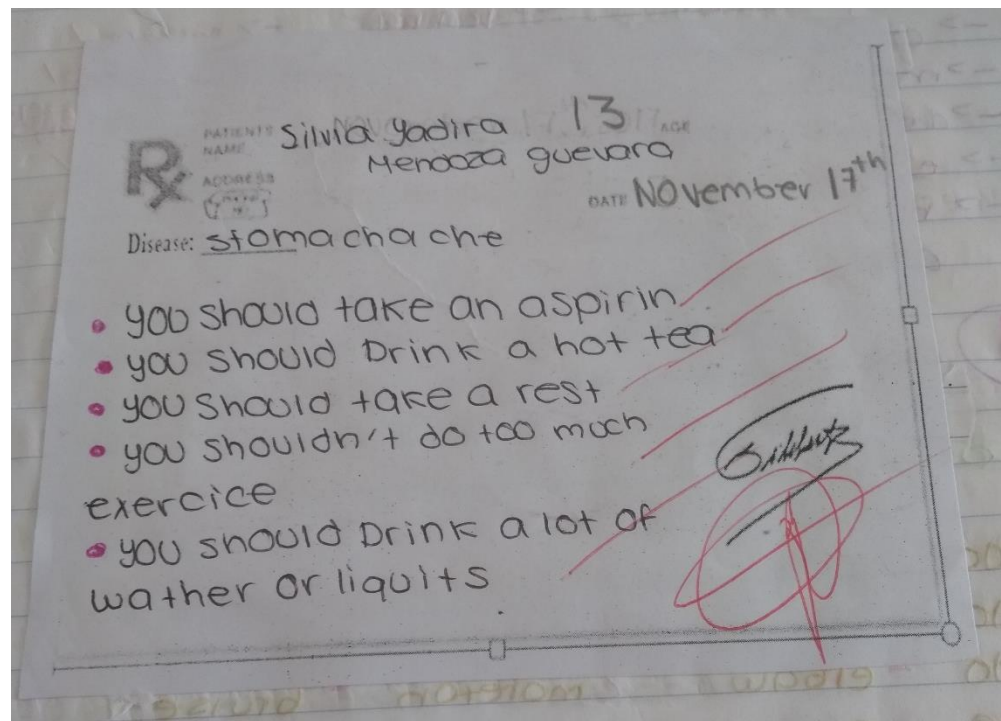 Rx PATIENT'S NAME Silvia Yadira 13 AGE
Mendoza guevara
ADDRESS
DATE November 17th
Disease: stomachache
• you should take an aspirin
• you should Drink a hot tea
• you should take a rest
• you shouldn't do too much
exercice
• you should Drink a lot of
wather or liquits